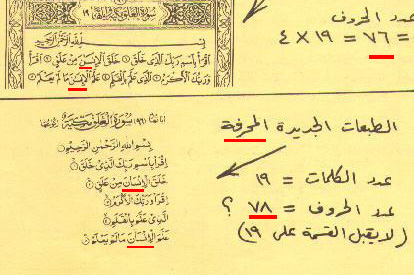 عدد الحروف
= ٧٦ = ١٩ X ٤
سورة العلق مكية ١٩
بسم الله الرحمن الرحيم
اقرأ باسم ربك الذي خلق ١ خلق الإنسن من علق ٢ اقرأ
وربك الأكرم ٣ الذي علم بالقلم ٤ علم الإنسن ما لم يعلم ٥
الطبعات الجديدة المحرفة
عدد الكلمات = ١٩
عدد الحروف = ٧٨ ؟
(لا يقبل القسمة على ١٩)
(٩٦) سورة العلق مكية
بسم الله الرحمن الرحيم
اقرأ باسم ربك الذي خلق ١
خلق الإنسان من علق ٢
اقرأ وربك الأكرم ٣
الذي علم بالقلم ٤
علم الإنسان ما لم يعلم ٥